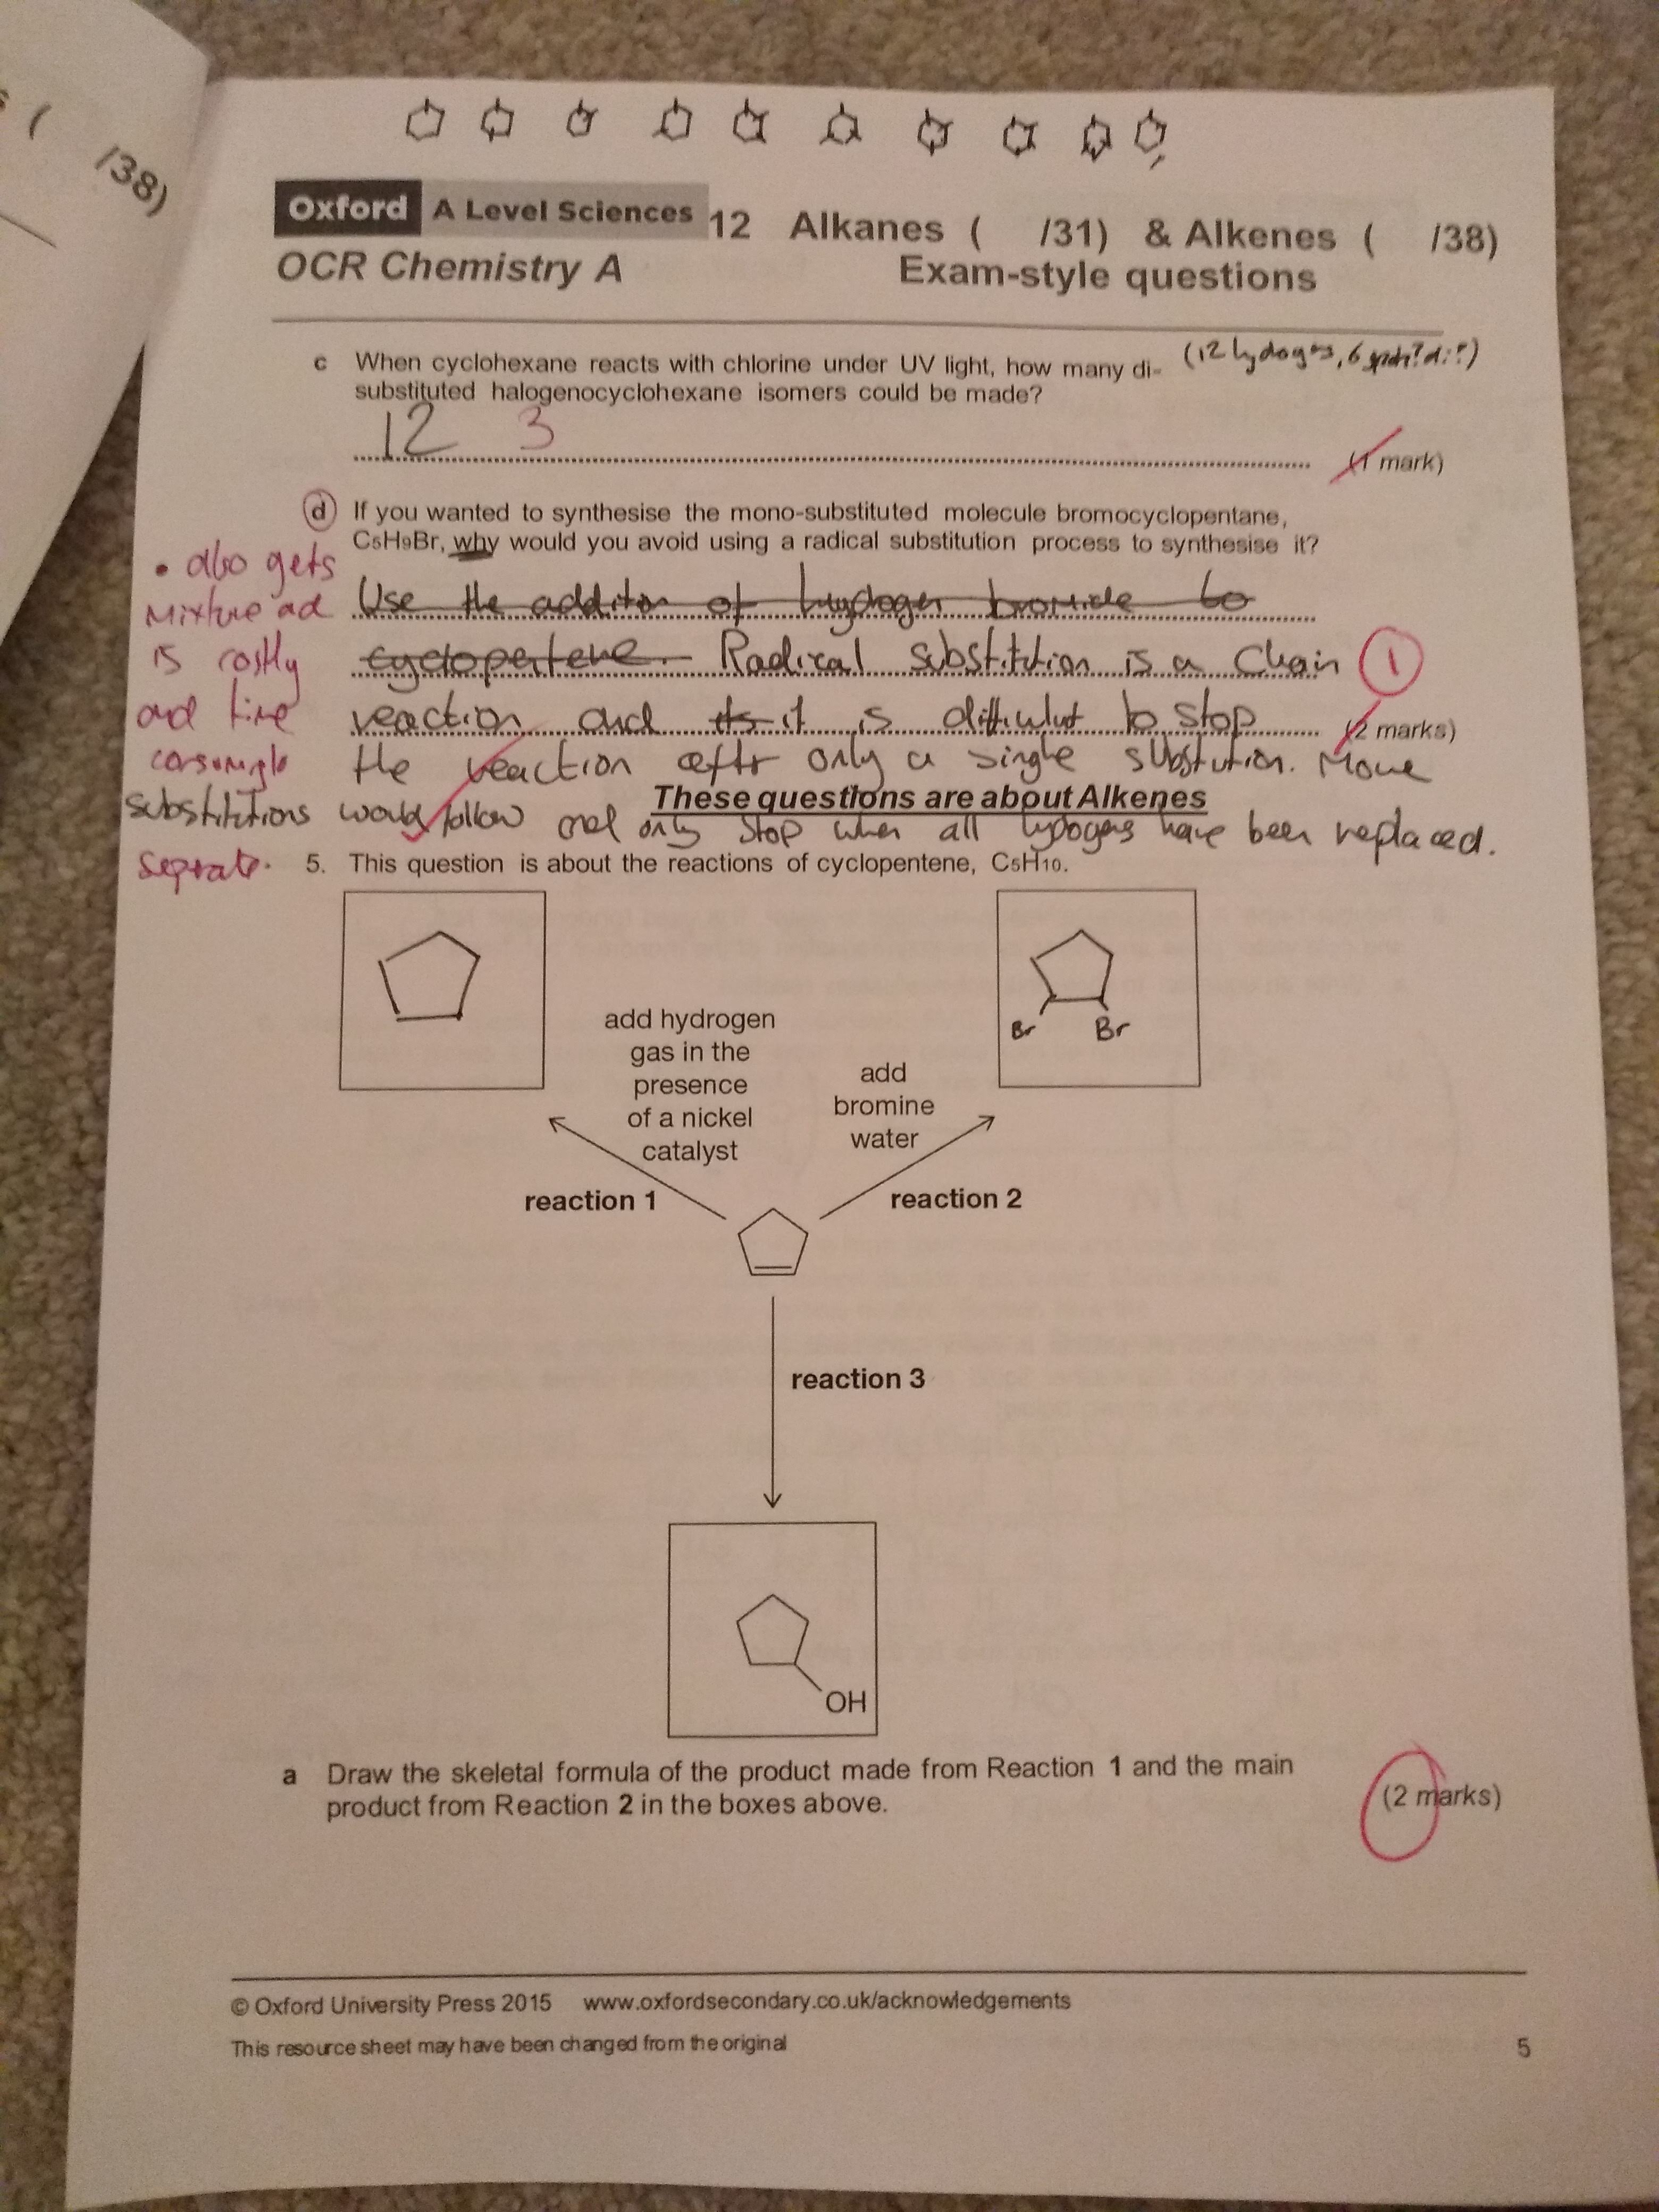 s (
/38)
Oxford A Level Sciences 12 Alkanes ( /31) & Alkenes ( /38)
OCR Chemistry A Exam-style questions
c When cyclohexane reacts with chlorine under UV light, how many di- (12 hydoges, 6 di?)
substituted halogenocyclohexane isomers could be made?
12 3
(1 mark)
d If you wanted to synthesise the mono-substituted molecule bromocyclopentane,
C5H9Br, why would you avoid using a radical substitution process to synthesise it?
• also gets
Mixture ad
is costly
and time
consumingto
seprate.
Use the addition of hydrogen bromide to
cyclopentene. Radical substitution is a Chain 1
reaction and its it is difficulut to stop (2 marks)
the reaction after only a single substution. More
substitutions would follow and only stop when all hydogens have been replaced.
These questions are about Alkenes
5. This question is about the reactions of cyclopentene, C5H10.
Br Br
add hydrogen
gas in the
presence
of a nickel
catalyst
add
bromine
water
reaction 1
reaction 2
reaction 3
OH
a Draw the skeletal formula of the product made from Reaction 1 and the main
product from Reaction 2 in the boxes above.
(2 marks)
© Oxford University Press 2015 www.oxfordsecondary.co.uk/acknowledgements
This resource sheet may have been changed from the original
5